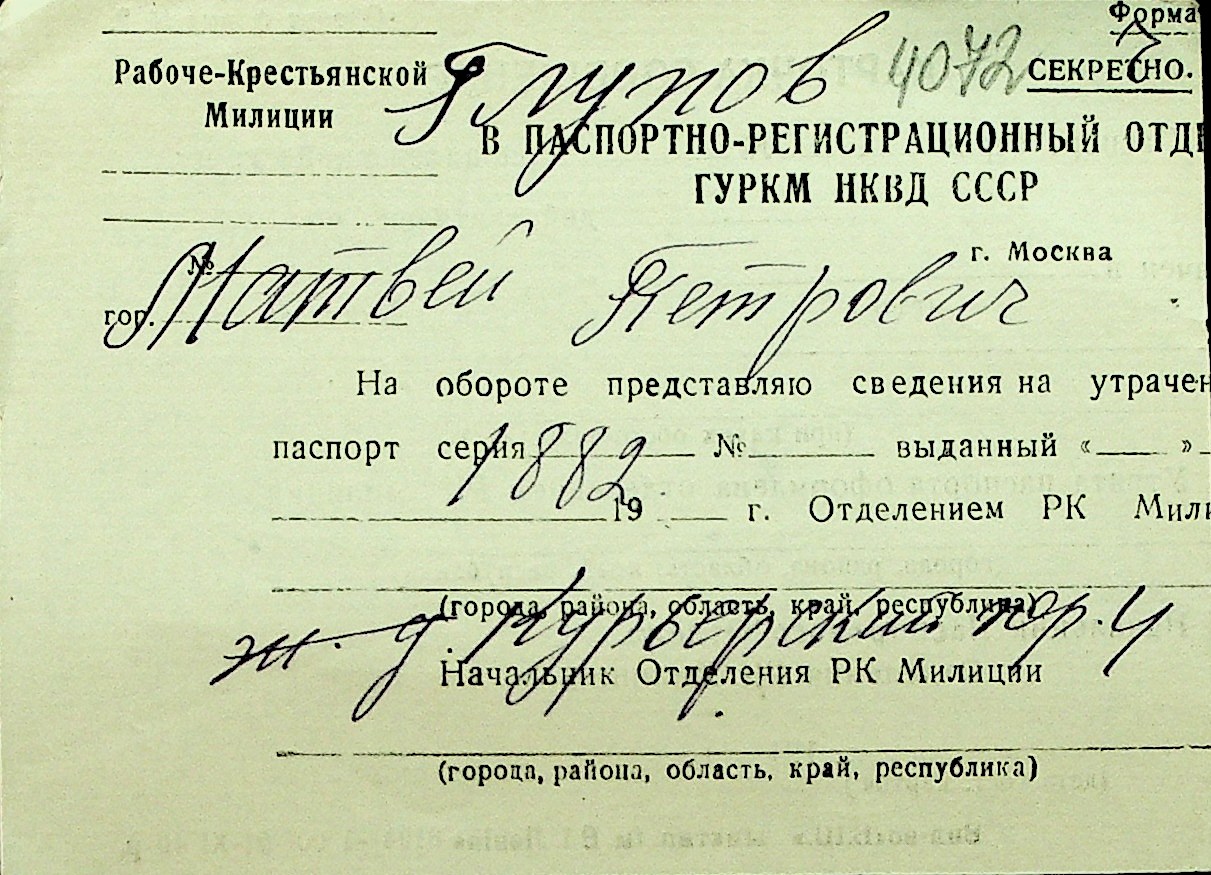 Форма
Рабоче-Крестьянской
Милиции
Глупов
4072
СЕКРЕТНО.
В ПАСПОРТНО-РЕГИСТРАЦИОННЫЙ ОТДЕ
ГУРКМ НКВД СССР
№
г. Москва
гор.
Матвей Петрович
На обороте представляю сведения на утрачен
паспорт серия № выданный « »
1882
19 г. Отделением РК Мили
(города, района, область, край, республика)
ж. д. Курьерский пр. 4
Начальник Отделения РК Милиции
(города, района, область, край, республика)